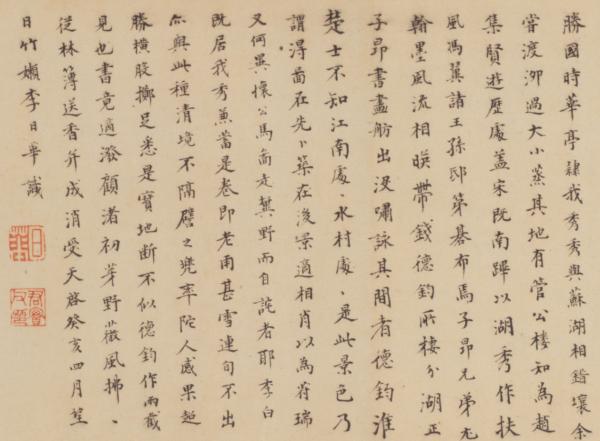 勝國時華亭隸我秀秀與蘇湖相錯壤余
嘗渡泖過大小蒸其地有管公樓知為趙
集賢遊歷處蓋宋既南蹕以湖秀作扶
風馮翼諸王孫邸第碁布焉子昂兄弟尤
翰墨風流相映帶錢德鈞所棲分湖正
子昂書畫舫出沒嘯詠其間者德鈞淮
楚士不知江南處、水村處、是此景色乃
謂得圖在先卜築在後景適相肖以為符瑞
又何異懷公馬圖走冀野而自詫者耶李白
既居我秀兼蓄是卷即老甫甚雪連旬不出
亦與此種清境不隔譬之兜率陀人感果超
勝橫股擲足悉是寶地斷不似德鈞作兩截
見也書竟適潑顧渚初芽野薇風拂、
從林薄送香并成消受天啓癸亥四月望
日竹嬾李日華識
日華